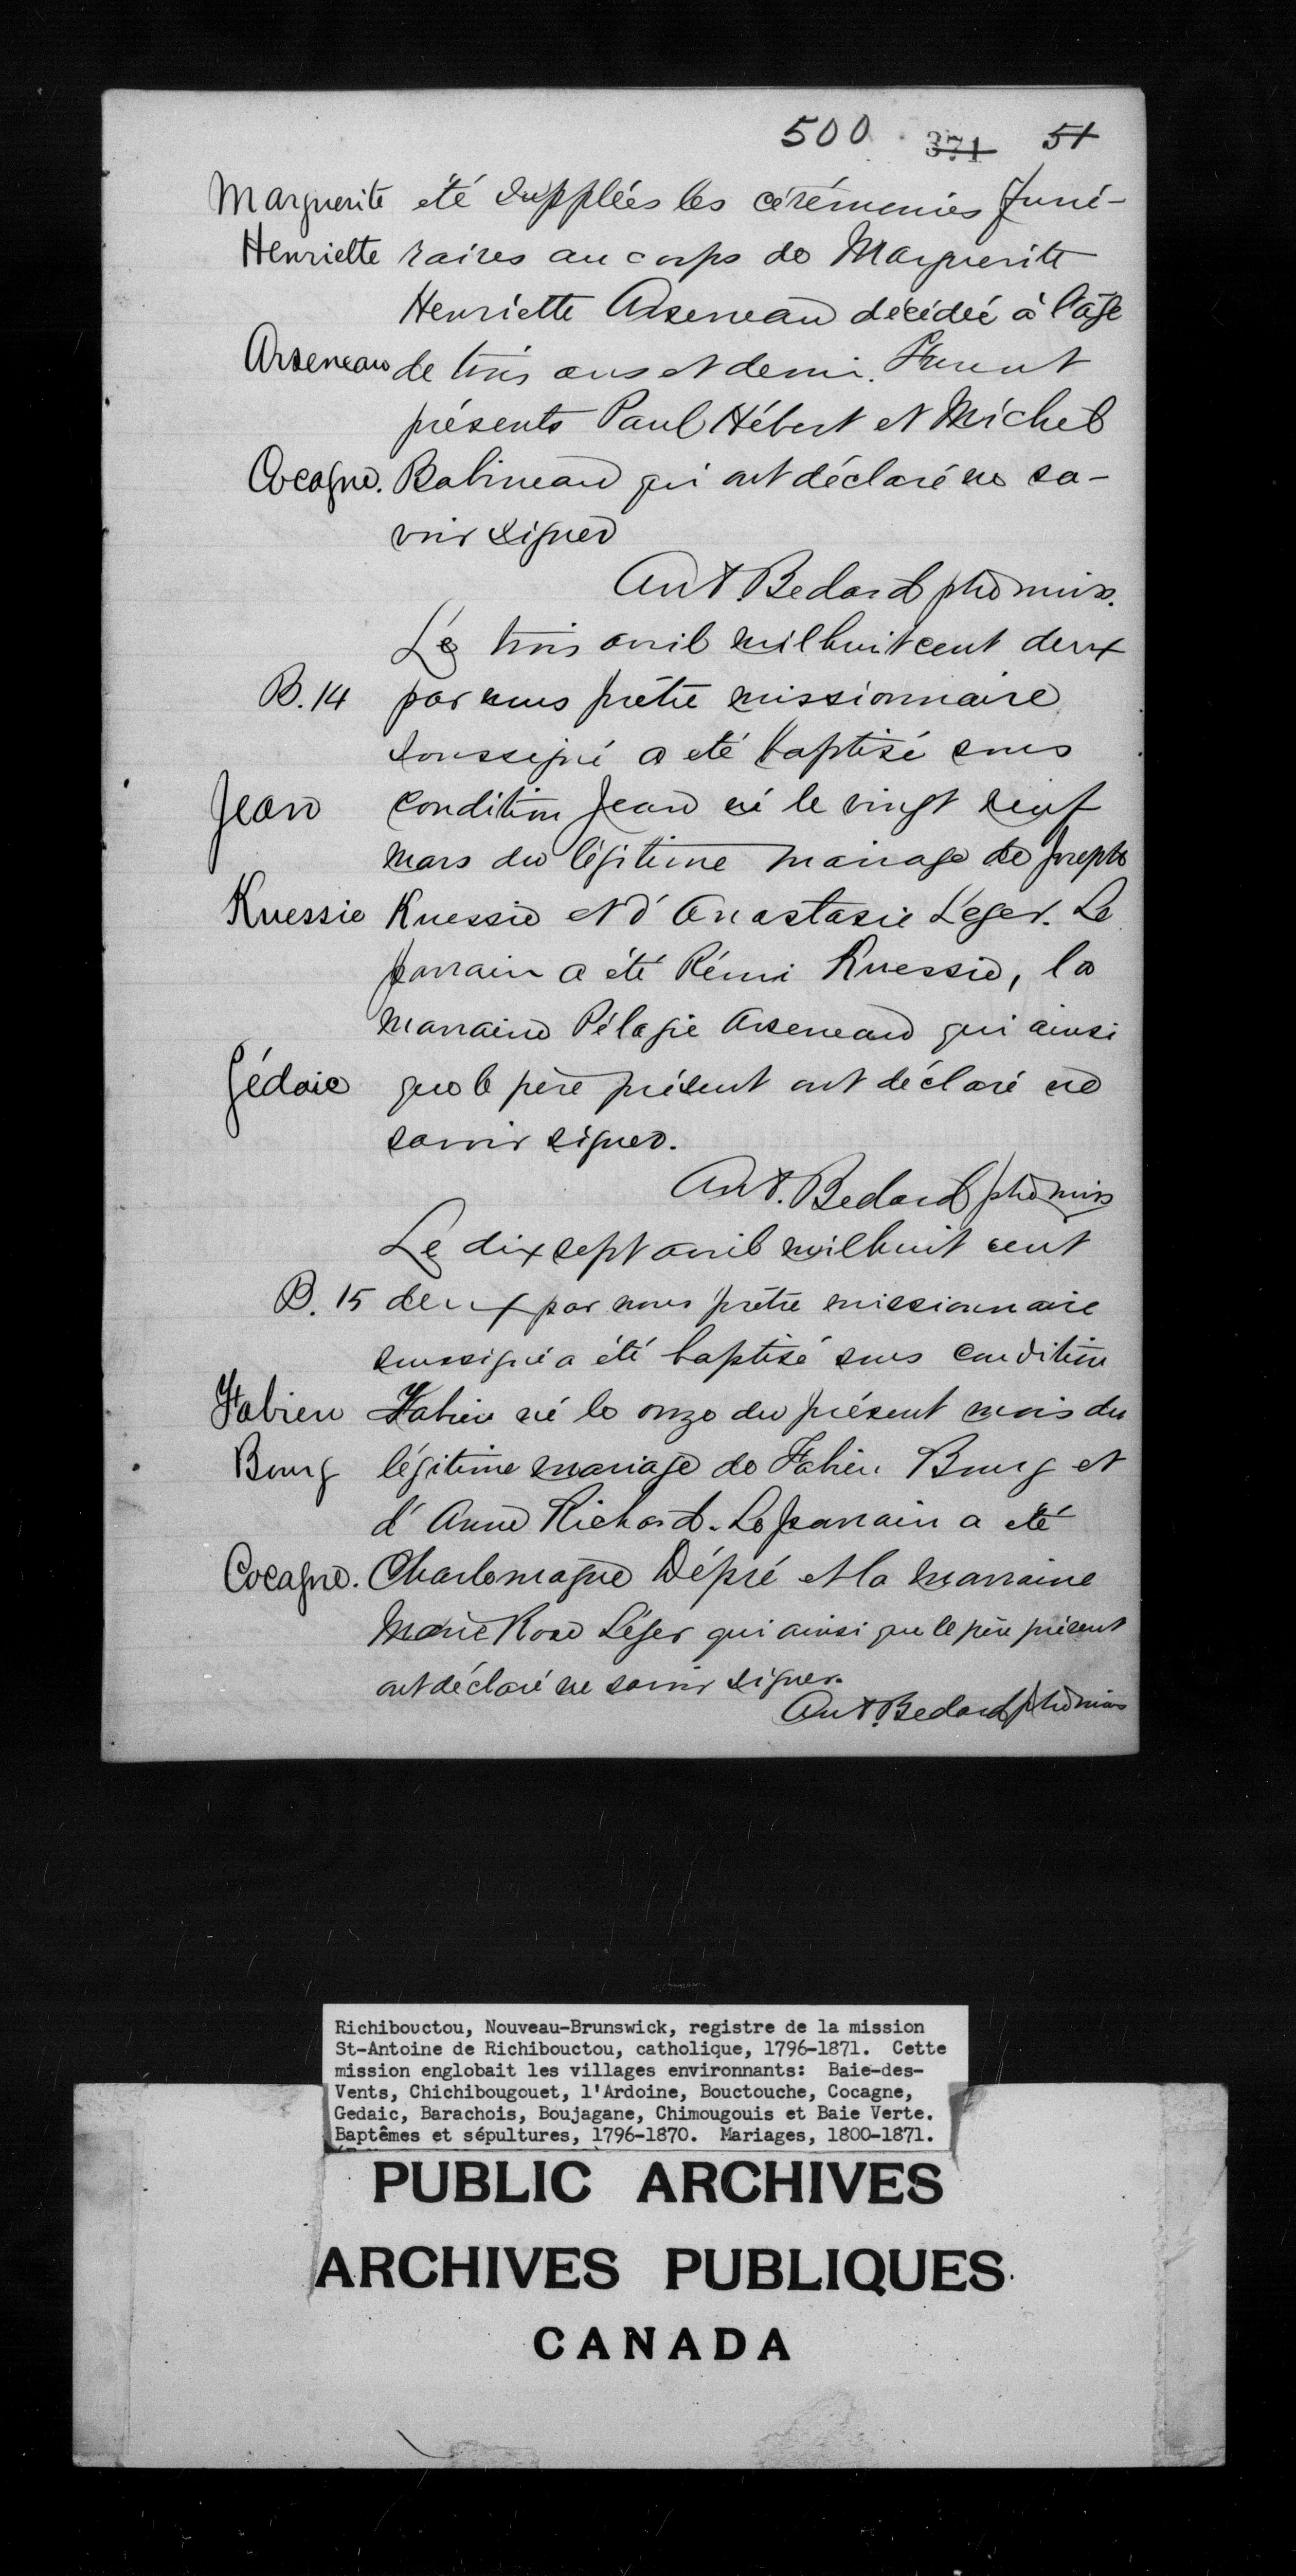 500 371 51
Marguerite été suppléés les cérémonies funé-
Henriette raires au corps de Marguerite
Henriette Arseneau décédée à l'âge
Arseneau de trois ans et demi. Furent
présents Paul Hébert et Michel
Cocagne. Babineau qui ont déclaré ne sa-
voir signer
Ant. Bedard ptre miss.
Le trois avril mil huit cent deux
B. 14 par nous prêtre missionnaire
soussigné a été baptisé sous
Jean condition Jean né le vingt neuf
mars du légitime mariage de Joseph
Kuessie Kuessie et d'Anastasie Léger. Le
parrain a été Rémi Kuessie, la
marraine Pélagie Arseneau qui ainsi
Gédaic que le père présent ont déclaré ne
savoir signer.
Ant. Bedard ptre miss
Le dix sept avril mil huit cent
B. 15 deux par nous prêtre missionnaire
soussigné a été baptisé sous condition
Fabien Fabien né le onze du présent mois du
Bourg légitime mariage de Fabien Bourg et
d'Anne Richard. Le parrain a été
Cocagne. Charlemagne Dépré et la marraine
Marie Rose Léger qui ainsi que le père présent
ont déclaré ne savoir signer.
Ant. Bedard ptre miss
Richibouctou, Nouveau-Brunswick, registre de la mission
St-Antoine de Richibouctou, catholique, 1796-1871. Cette
mission englobait les villages environnants: Baie-des-
Vents, Chichibougouet, l'Ardoine, Bouctouche, Cocagne,
Gedaic, Barachois, Boujagane, Chimougouis et Baie Verte.
Baptêmes et sépultures, 1796-1870. Mariages, 1800-1871.
PUBLIC ARCHIVES
ARCHIVES PUBLIQUES
CANADA